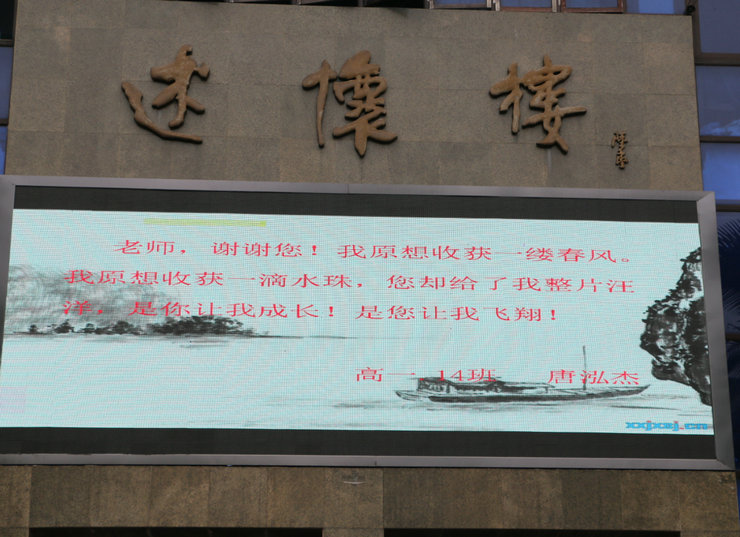 述懷樓
老师，谢谢您！我原想收获一缕春风。
我原想收获一滴水珠，您却给了我整片汪
洋，是你让我成长！是您让我飞翔！
高一 14班 唐泓杰
xxjxsj.cn